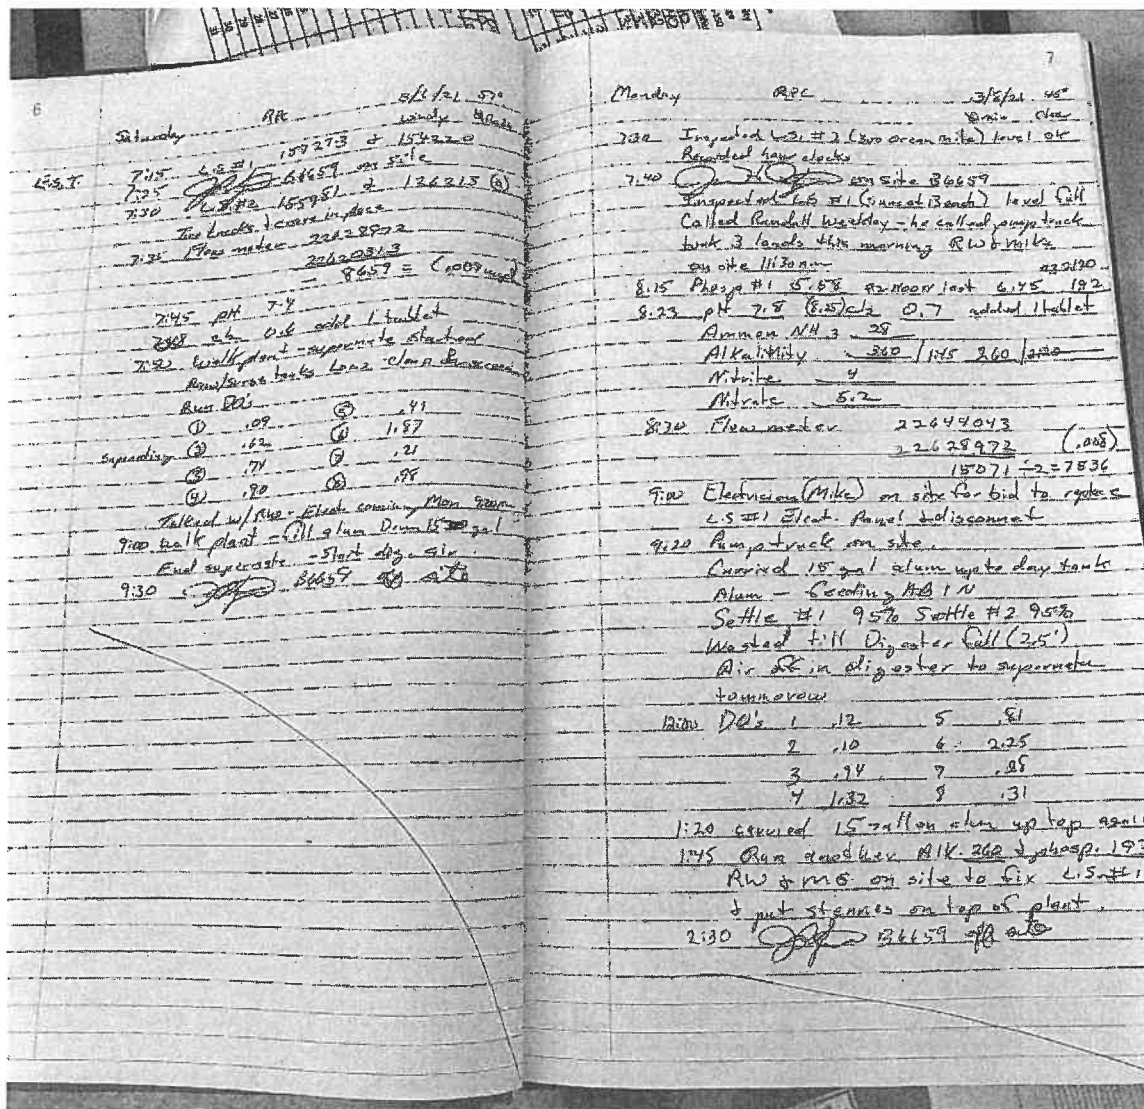 6
Saturday RPC 3/6/21 57°
windy
E.S.T. 7:15 L.S. #1 159273 & 154220
7:25 B6659 on site
7:30 L.S. #2 155951 & 126215
Two locks & cover in place
7:35 Flow meter 22628972
22620313
8659 = (.009 mgd)
7:45 pH 7.4
0.6 add 1 tablet
7:50 Walk plant - supernate started
clean &
Run DO's
① .09 ⑤ .41
Supernating ② .62 ⑥ 1.87
③ .74 ⑦ .21
④ .90 ⑧ .98
Talked w/ - Elect coming Mon 9:00
9:00 walk plant - fill alum Drum 15 gal
End supernate - Start dig. air
9:30 B6659 off site
7
Monday RPC 3/8/21 45°
Clear
7:30 Inspected L.S. #2 (370 ocean mile) level ok
Recorded hour clocks
7:40 on site B6659
Inspected L.S. #1 (Sunset Beach) level full
Called Randall Weekley - he called pump truck
took 3 loads this morning RW & Mike
on site 11:30
8:15 Phosp #1 5.58 #2 last 6.45 192
8:23 pH 7.8 (8.25) cl2 0.7 added 1 tablet
Ammon NH3 28
Alkalinity 360 / 1:45 260
Nitrite 4
Nitrate 5.2
8:30 Flow meter 22644043
22628972 (.008)
15071 ÷ 2 = 7536
9:00 Electrician (Mike) on site for bid to replace
L.S #1 Elect. Panel & disconnect
9:20 Pump truck on site.
Carried 15 gal alum up to day tank
Alum - feeding AB 1 N
Settle #1 95% Settle #2 95%
Wasted till Digester full (2.5')
Air off in digester to supernate
tommorow
12:00 DO's 1 .12 5 .81
2 .10 6 2.25
3 .94 7 .28
4 1.32 8 .31
1:20 carried 15 gallon alum up top again
1:45 Ran another Alk. 260 & phosp. 192
RW & MG on site to fix L.S. #1
& put on top of plant.
2:30 B6659 off site